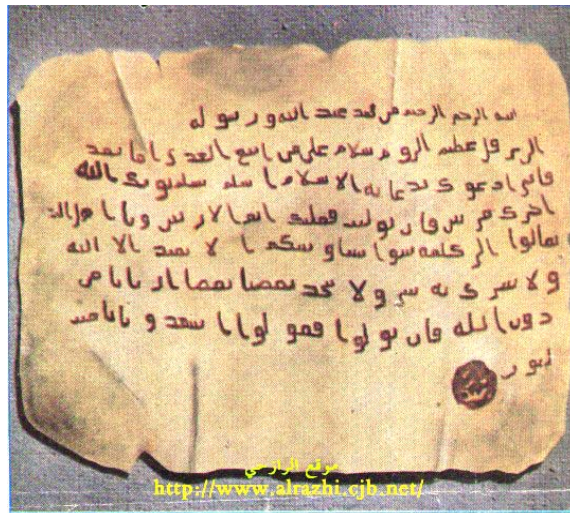 بسم الله الرحمن الرحيم من محمد عبد الله ورسوله
الى هرقل عظيم الروم سلام على من اتبع الهدى اما بعد
فانى ادعوك بدعاية الاسلام اسلم تسلم يوتك الله
اجرك مرتين فان توليت فعليك اثم الاريسين ويا اهل الكتاب
تعالوا الى كلمة سوا بيننا وبينكم الا نعبد الا الله
ولا نشرك به شيئا ولا يتخذ بعضنا بعضا اربابا من
دون الله فان تولوا فقولوا اشهدوا بانا مسلمون
موقع الرازحي
http://www.alrazhi.cjb.net/